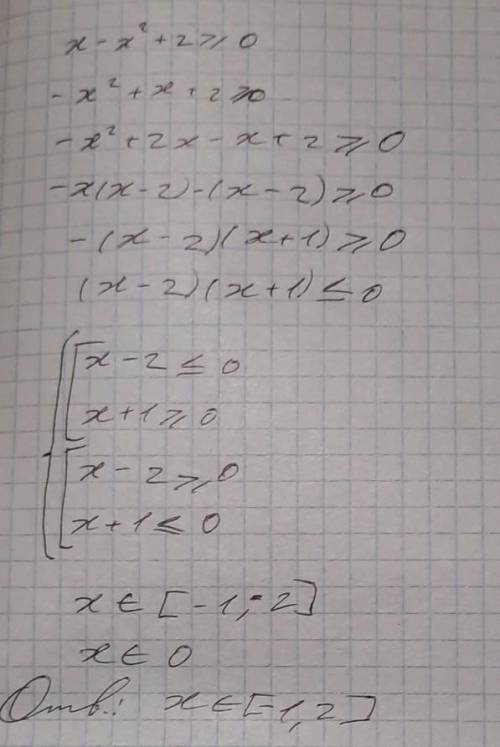 x - x² + 2 ≥ 0
- x² + x + 2 ≥ 0
- x² + 2x - x + 2 ≥ 0
-x(x - 2) - (x - 2) ≥ 0
- (x - 2)(x + 1) ≥ 0
(x - 2)(x + 1) ≤ 0
x - 2 ≤ 0
x + 1 ≥ 0
x - 2 ≥ 0
x + 1 ≤ 0
x ∈ [-1; 2]
x ∈ 0
Отв.: x ∈ [-1, 2]